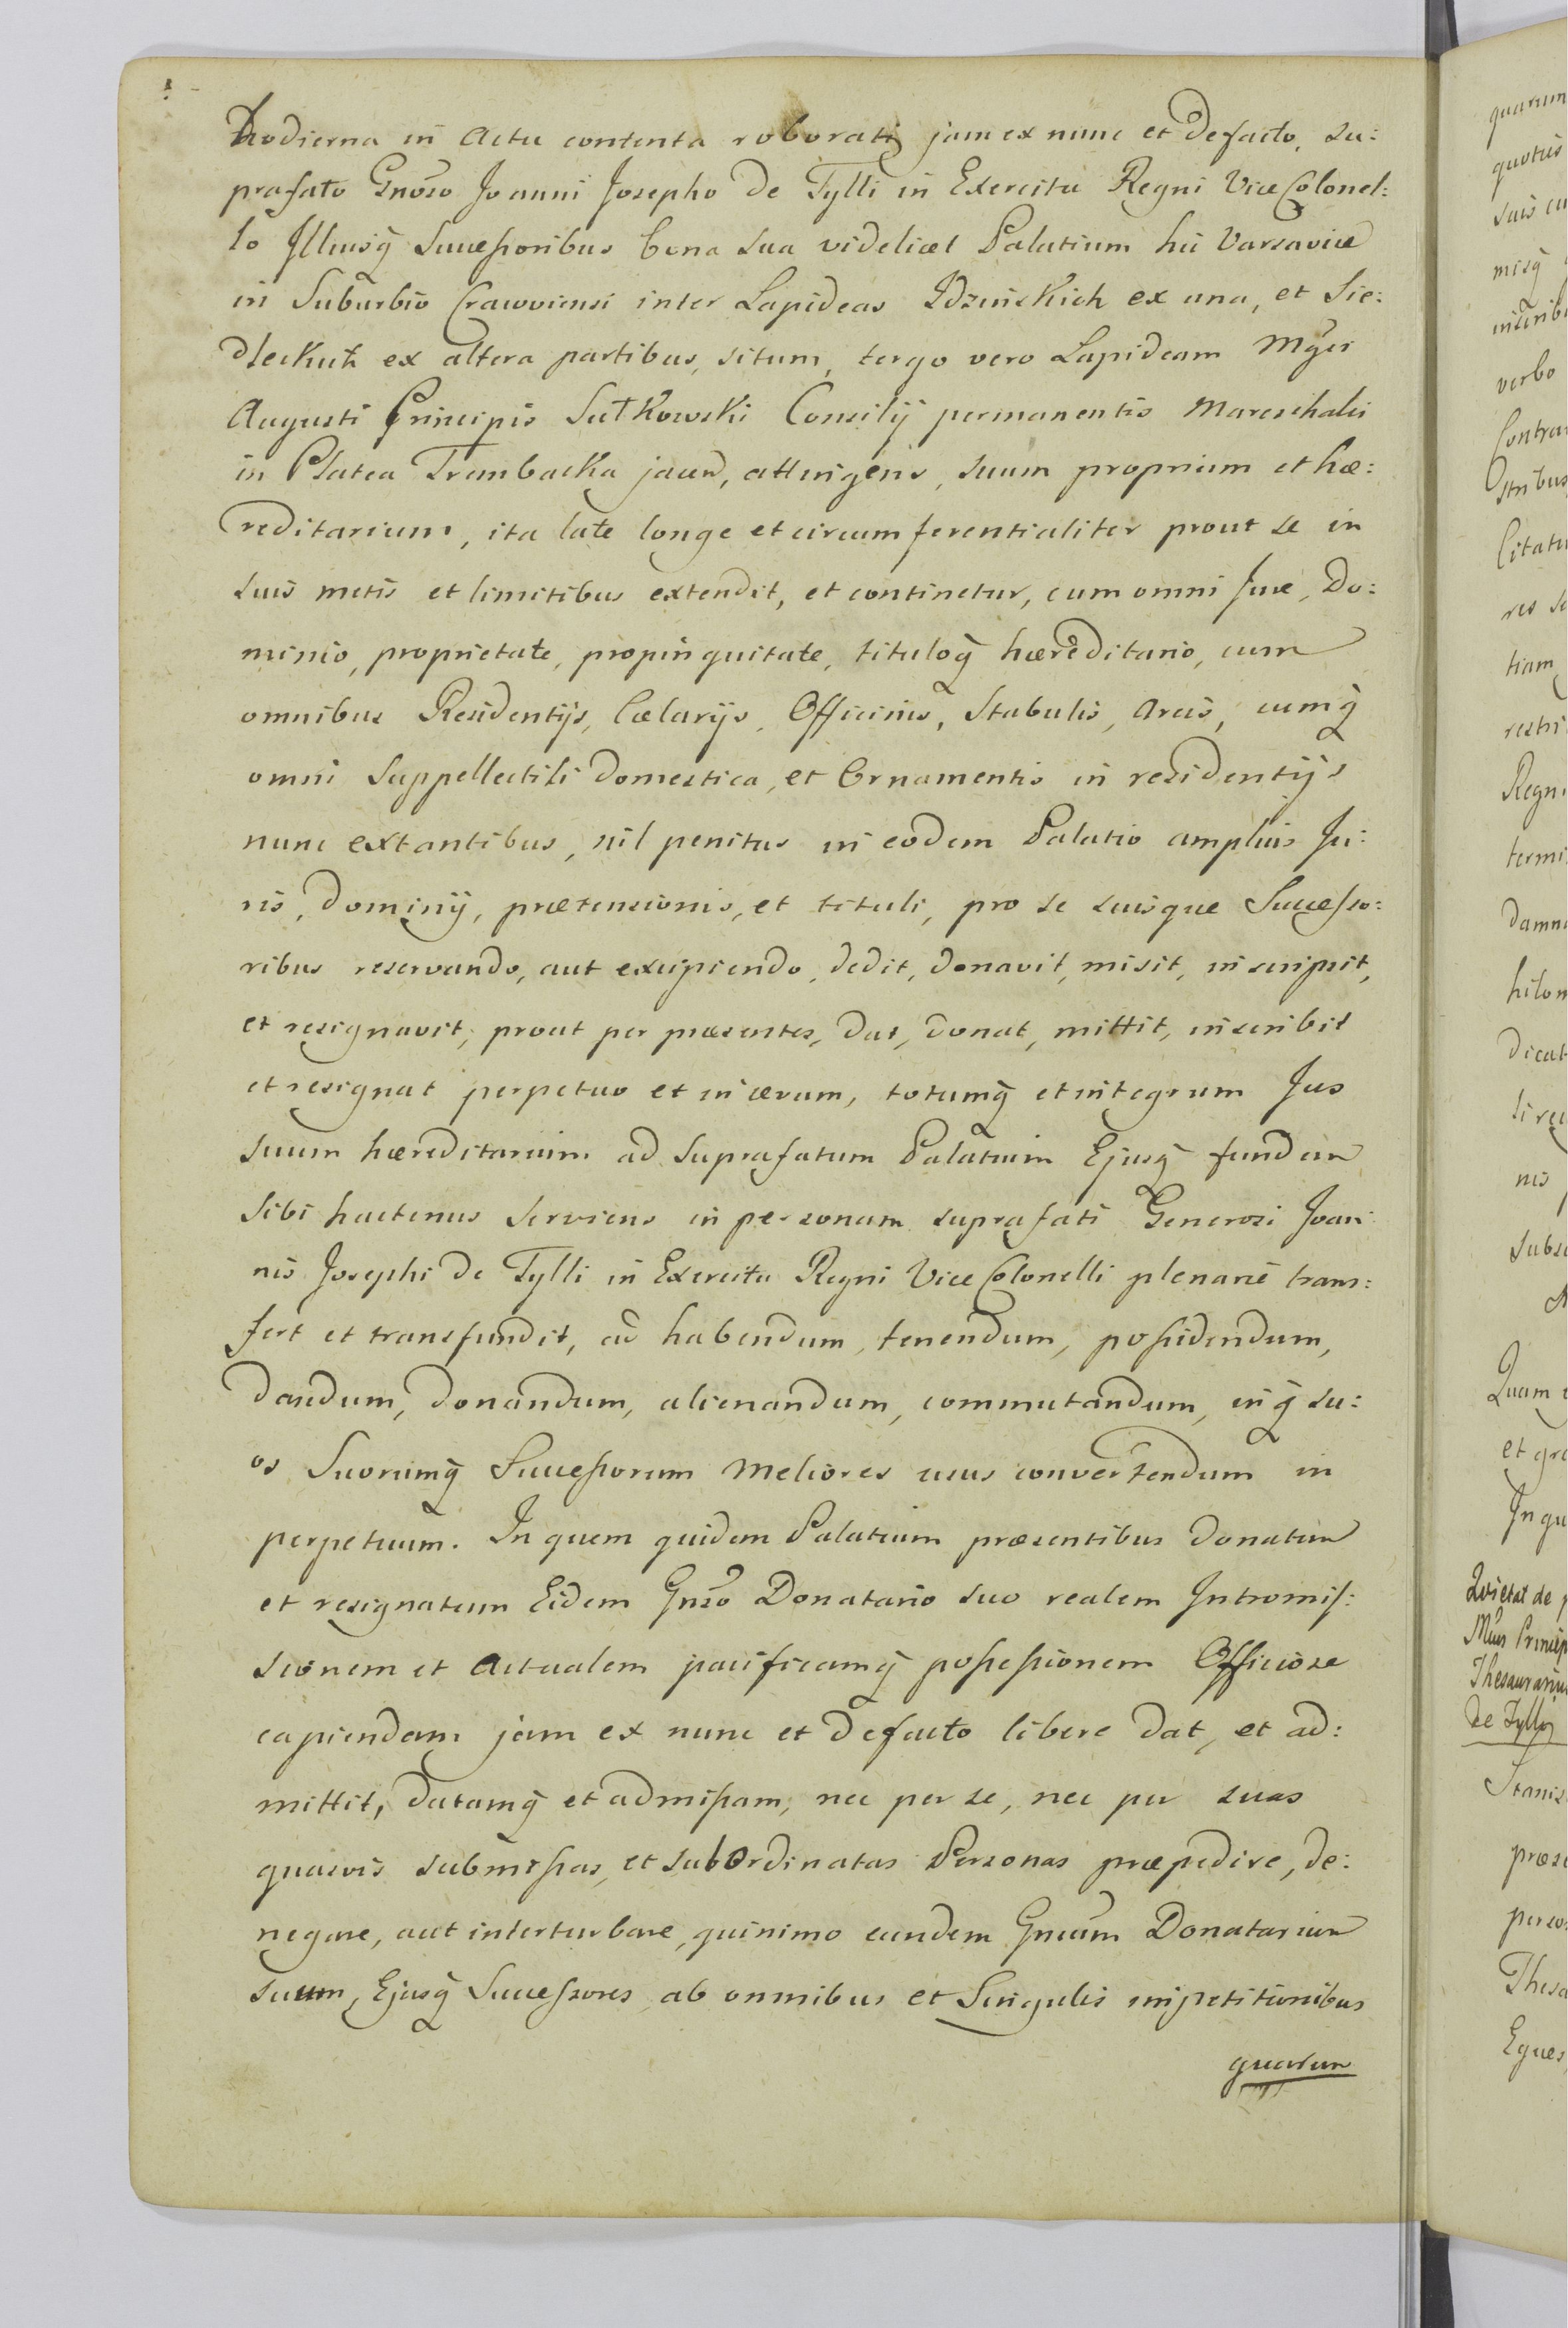 hodierna in Actu contenta roborati jam ex nunc et defacto, su:
prafato Gnoso Joanni Josepho de Tylli in Exercitu Regni Vice Colonel:
lo Illiusq Successoribus bona sua videlicet Palatium hic Varsaviae
in Suburbio Cracoviensi inter Lapideas Idzinskich ex una, et Sie:
dleckich ex altera partibus, situm, tergo vero Lapideam Mgci
Augusti Principis Sułkowski Consilij permanentis Mareschalci
in Platea Trembacka jacen, attingens, suum proprium et hæ:
reditarium, ita late longe et circumferentialiter prout se in
suis metis et limitibus extendit, et continetur, cum omni Jure, Do:
minio, proprietate, propinquitate, tituloq hæreditario, cum
omnibus Residentijs, Cælarijs, Officinis, Stabulis, Areis, cumq
omni Suppellectili domestica, et Ornamentis in residentijs
nunc extantibus, nil penitus in eodem Palatio amplius Ju:
ris, dominij, prætensionis, et tituli, pro se suisque Successo:
ribus reservando, aut excipiendo, dedit, donavit, misit, inscripsit,
et resignavit, prout per præsentes, dat, donat, mittit, inscribit
et resignat perpetuo et in ævum, totumq et integrum Jus
suum hæreditarium ad suprafatum Palatium Ejusq fundum
sibi hactenus serviens in personam suprafati Generosi Joan
nis Josephi de Tylli in Exercitu Regni Vice Colonelli plenarie trans:
fert et transfundit, ad habendum, tenendum, possidendum,
dandum, donandum, alienandum, commutandum, inq su:
os Suorumq Successorum meliores usus convertendum in
perpetuum. In quem quidem Palatium præsentibus donatum
et resignatum Eidem Gnso Donatario suo realem Intromis:
sionem et Actualem pacificamq possessionem Officiose
capiendam jam ex nunc et defacto libere dat, et ad:
mittit, datamq et admissam, nec per se, nec per suas
quasvis submissas, et subordinatas Personas præpedire, de:
negare, aut interturbare, quinimo eundem Gnsum Donatarium
suum, Ejusq Successores ab omnibus et Singulis impetitionibus
quarum
quarum
quotus
suis
misq
verbo
Contra
Citatu
res
tiam
Regni
termi
damn
dicat
nis
Quam
et gra
In qu
Quietat de
Princip
Thesaurariu
de Tylly
Stanis
præse
perso
Thesa
Eques